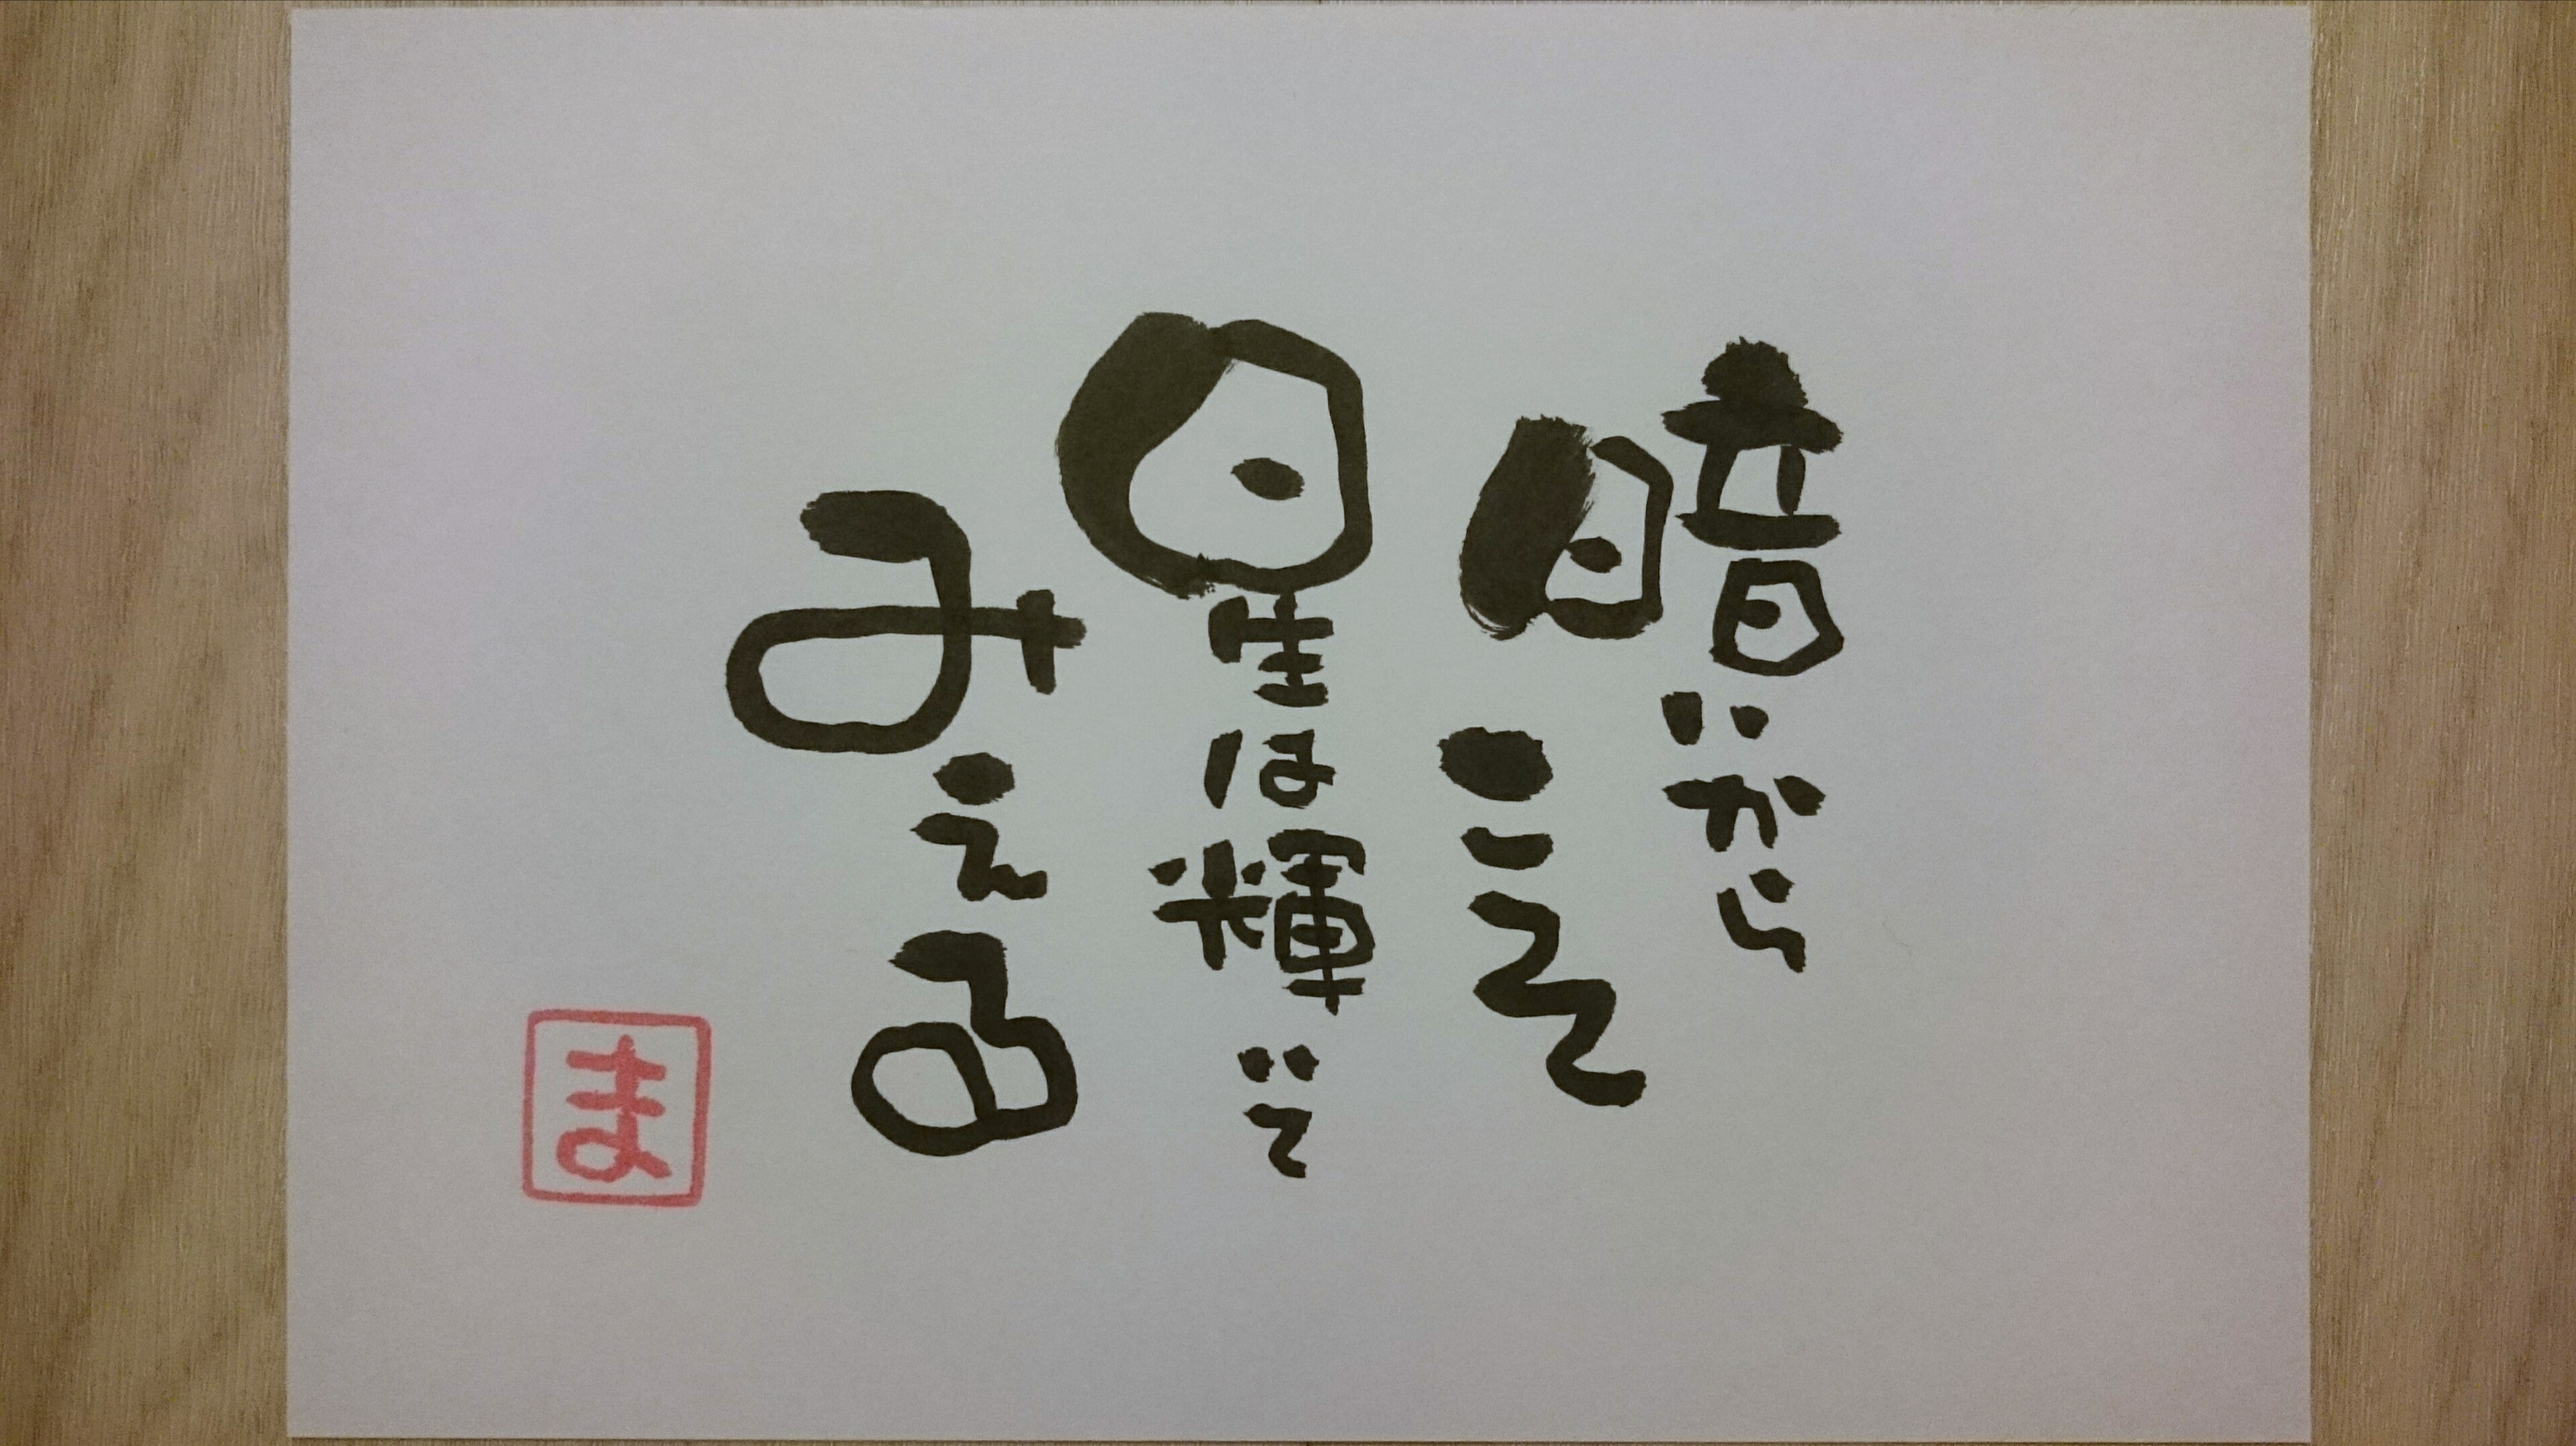 暗いから
こそ
星は輝いて
みえる
ま